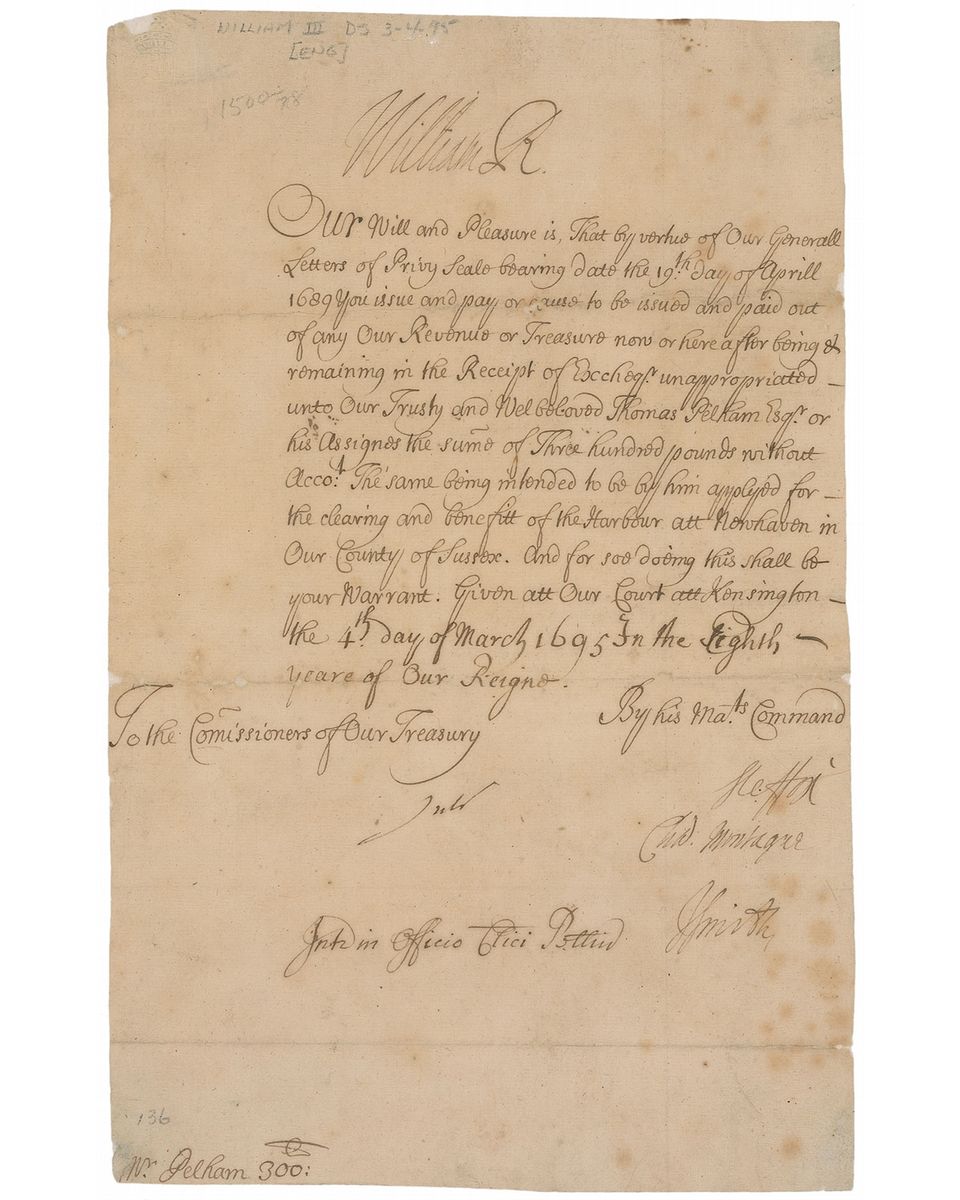 WILLIAM III DS 3-4-95
[ENG]
1500-
William R.
Our Will and Pleasure is, That by vertue of Our Generall
Letters of Privy Seale bearing date the 19th. day of Aprill
1689 You issue and pay or cause to be issued and paid out
of any Our Revenue or Treasure now or here after being &
remaining in the Receipt of Excheqr. unappropriated –
unto Our Trusty and Welbeloved Thomas Pelham Esqr. or
his Assignes the sum̃e of Three hundred pounds without
Accot. The same being intended to be by him applyed for –
the clearing and benefitt of the Harbour att Newhaven in
Our County of Sussex. And for soe doeing this shall be
your Warrant. Given att Our Court att Kensington –
the 4th. day of March 1695 In the Eighth –
yeare of Our Reigne.
By his Mats. Command
To the Com̃issioners of Our Treasury
Ste. ffox
Intr
Chas. Montague
JSmith
Intr in Officio Clici Pellium
136
Mr. Pelham 300: